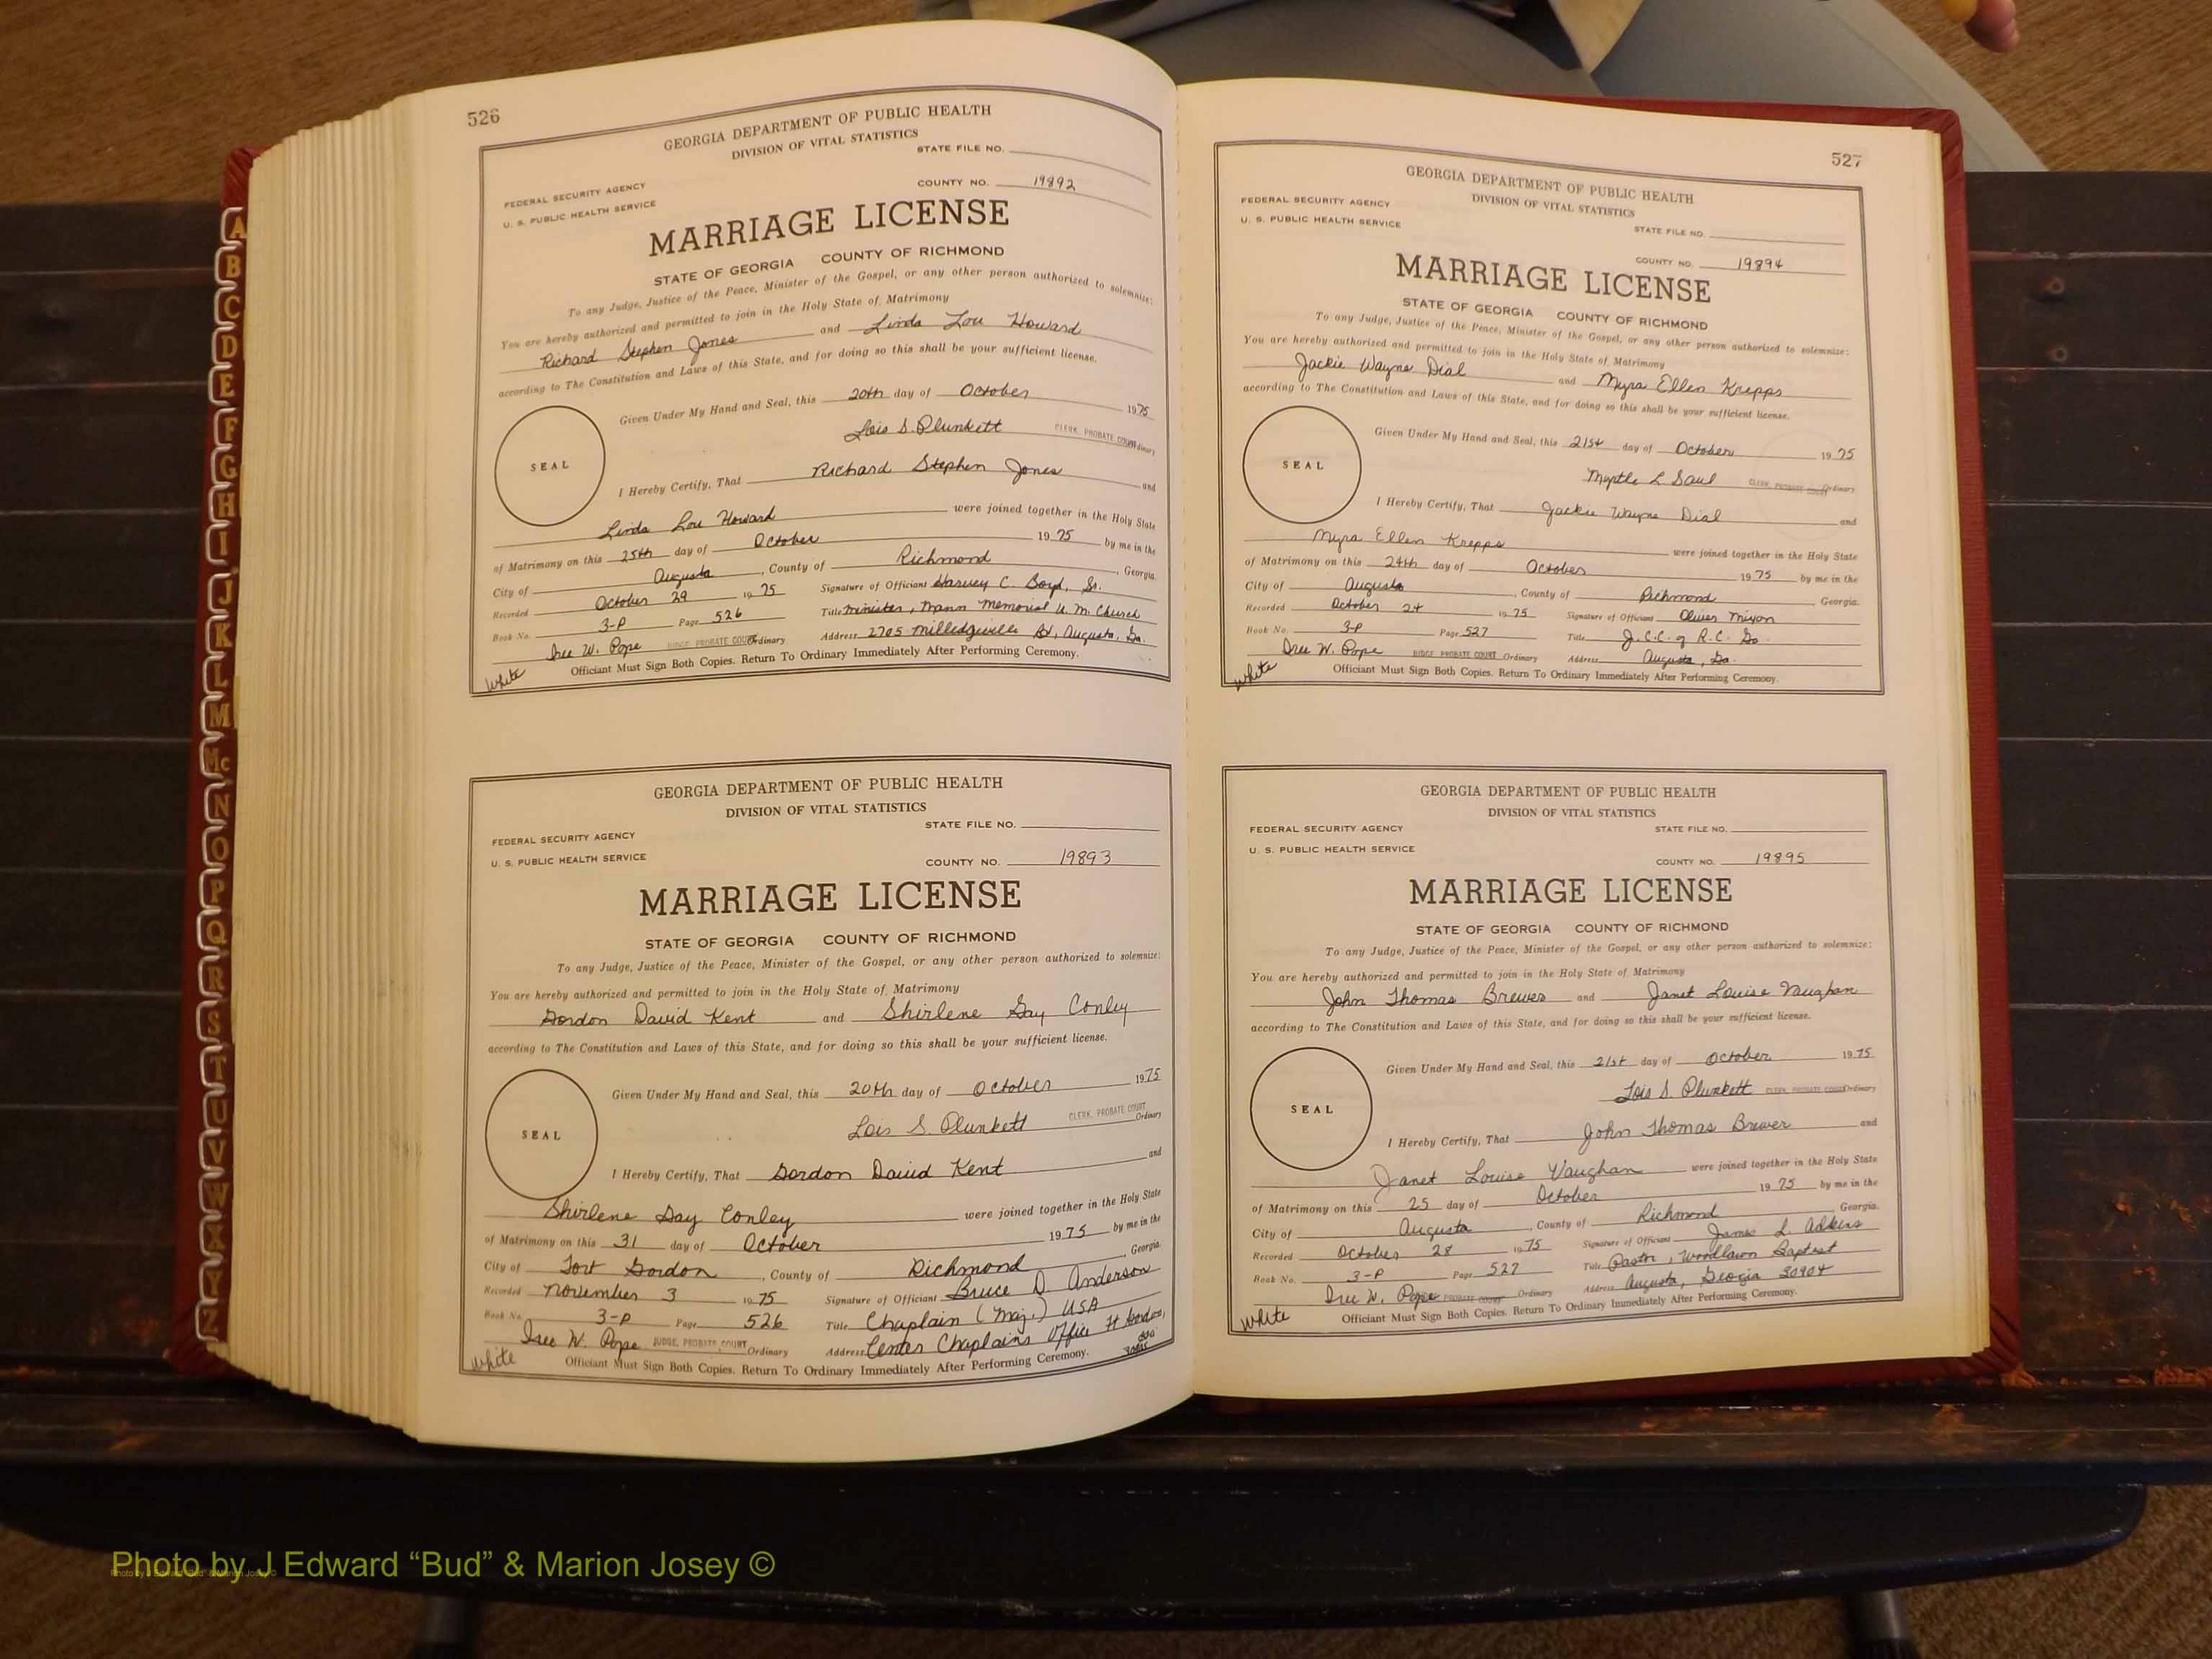 526
GEORGIA DEPARTMENT OF PUBLIC HEALTH
DIVISION OF VITAL STATISTICS
STATE FILE NO.
FEDERAL SECURITY AGENCY
COUNTY NO. 19892
U. S. PUBLIC HEALTH SERVICE
MARRIAGE LICENSE
STATE OF GEORGIA COUNTY OF RICHMOND
To any Judge, Justice of the Peace, Minister of the Gospel, or any other person authorized to solemnize:
You are hereby authorized and permitted to join in the Holy State of Matrimony
Richard Stephen Jones and Linda Lou Howard
according to The Constitution and Laws of this State, and for doing so this shall be your sufficient license.
Given Under My Hand and Seal, this 20th day of October 1975
Lois S. Plunkett CLERK, PROBATE COURT Ordinary
SEAL
I Hereby Certify, That Richard Stephen Jones and
Linda Lou Howard were joined together in the Holy State
of Matrimony on this 25th day of October 1975 by me in the
City of Augusta, County of Richmond, Georgia.
Recorded October 29 1975 Signature of Officiant Harvey C. Boyd, Sr.
Book No. 3-P Page 526 Title Minister, Mann Memorial U. M. Church
Isee W. Pope JUDGE PROBATE COURT Ordinary Address 2705 Milledgeville Rd, Augusta, Ga.
White Officiant Must Sign Both Copies. Return To Ordinary Immediately After Performing Ceremony.
GEORGIA DEPARTMENT OF PUBLIC HEALTH
DIVISION OF VITAL STATISTICS
STATE FILE NO.
FEDERAL SECURITY AGENCY
U. S. PUBLIC HEALTH SERVICE
COUNTY NO. 19893
MARRIAGE LICENSE
STATE OF GEORGIA COUNTY OF RICHMOND
To any Judge, Justice of the Peace, Minister of the Gospel, or any other person authorized to solemnize:
You are hereby authorized and permitted to join in the Holy State of Matrimony
Gordon David Kent and Shirlene Gay Conley
according to The Constitution and Laws of this State, and for doing so this shall be your sufficient license.
Given Under My Hand and Seal, this 20th day of October 1975
Lois S. Plunkett CLERK, PROBATE COURT Ordinary
SEAL
I Hereby Certify, That Gordon David Kent and
Shirlene Gay Conley were joined together in the Holy State
of Matrimony on this 31 day of October 1975 by me in the
City of Fort Gordon, County of Richmond, Georgia.
Recorded November 3 1975 Signature of Officiant Bruce D. Anderson
Book No. 3-P Page 526 Title Chaplain (Maj.) USA
Isee W. Pope JUDGE, PROBATE COURT Ordinary Address Center Chaplains Office Ft Gordon,
White Officiant Must Sign Both Copies. Return To Ordinary Immediately After Performing Ceremony.
527
GEORGIA DEPARTMENT OF PUBLIC HEALTH
DIVISION OF VITAL STATISTICS
FEDERAL SECURITY AGENCY
U. S. PUBLIC HEALTH SERVICE
STATE FILE NO.
COUNTY NO. 19894
MARRIAGE LICENSE
STATE OF GEORGIA COUNTY OF RICHMOND
To any Judge, Justice of the Peace, Minister of the Gospel, or any other person authorized to solemnize:
You are hereby authorized and permitted to join in the Holy State of Matrimony
Jackie Wayne Dial and Myra Ellen Krepps
according to The Constitution and Laws of this State, and for doing so this shall be your sufficient license.
Given Under My Hand and Seal, this 21st day of October 1975
Myrtle L Saul CLERK, PROBATE COURT Ordinary
SEAL
I Hereby Certify, That Jackie Wayne Dial and
Myra Ellen Krepps were joined together in the Holy State
of Matrimony on this 24th day of October 1975 by me in the
City of Augusta, County of Richmond, Georgia.
Recorded October 24 1975 Signature of Officiant Oliver Mixon
Book No. 3-P Page 527 Title J.C.C. of R.C. Ga.
Isee W. Pope JUDGE PROBATE COURT Ordinary Address Augusta, Ga.
White Officiant Must Sign Both Copies. Return To Ordinary Immediately After Performing Ceremony.
GEORGIA DEPARTMENT OF PUBLIC HEALTH
DIVISION OF VITAL STATISTICS
FEDERAL SECURITY AGENCY
STATE FILE NO.
U. S. PUBLIC HEALTH SERVICE
COUNTY NO. 19895
MARRIAGE LICENSE
STATE OF GEORGIA COUNTY OF RICHMOND
To any Judge, Justice of the Peace, Minister of the Gospel, or any other person authorized to solemnize:
You are hereby authorized and permitted to join in the Holy State of Matrimony
John Thomas Brewer and Janet Louise Vaughan
according to The Constitution and Laws of this State, and for doing so this shall be your sufficient license.
Given Under My Hand and Seal, this 21st day of October 1975
Lois S. Plunkett CLERK, PROBATE COURT Ordinary
SEAL
I Hereby Certify, That John Thomas Brewer and
Janet Louise Vaughan were joined together in the Holy State
of Matrimony on this 25 day of October 1975 by me in the
City of Augusta, County of Richmond Georgia.
Recorded October 28 1975 Signature of Officiant James L. Adkins
Book No. 3-P Page 527 Title Pastor, Woodlawn Baptist
Isee W. Pope PROBATE COURT Ordinary Address Augusta, Georgia 30904
White Officiant Must Sign Both Copies. Return To Ordinary Immediately After Performing Ceremony.
A
B
C
D
E
F
G
H
I
J
K
L
M
Mc
N
O
P
Q
R
S
T
U
V
W
X
Y
Z
Photo by J Edward “Bud” & Marion Josey ©